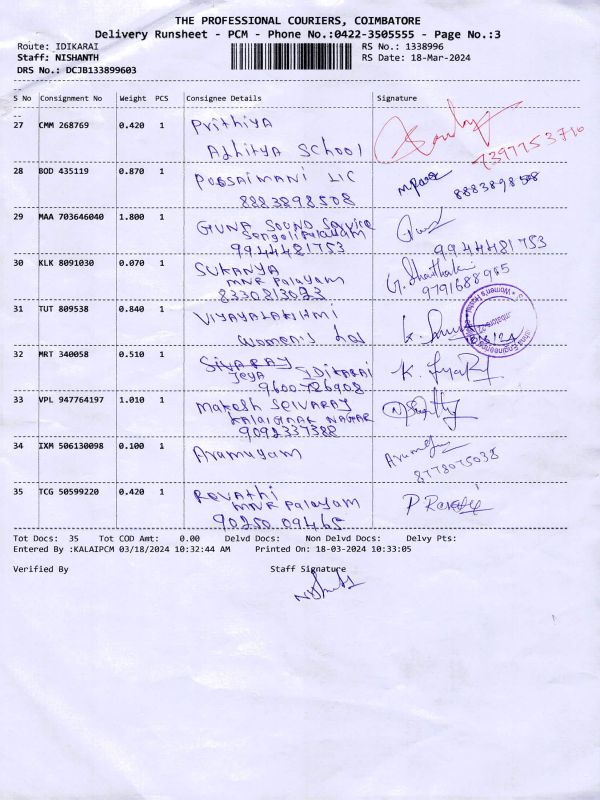 THE PROFESSIONAL COURIERS, COIMBATORE
Delivery Runsheet - PCM - Phone No.:0422-3505555 - Page No.:3
Route: IDIKARAI RS No.: 1338996
Staff: NISHANTH RS Date: 18-Mar-2024
DRS No.: DCJB133899603
S No Consignment No Weight PCS Consignee Details Signature
27 CMM 268769 0.420 1 Prithiya
Adhitya School
7397753716
28 BOD 435119 0.870 1 Poosaimani LIC
8883898508 8883898508
29 MAA 703646040 1.800 1 Guna Sound Service
Sengalipalayam
9944481753 9944481753
30 KLK 8091030 0.070 1 Sukanya
MNR Palayam
8330813023 9791688985
31 TUT 809538 0.840 1 Vijayalakshmi
Women's
32 MRT 340058 0.510 1 Sivaraj
Jeya Idikarai
9600726908
33 VPL 947764197 1.010 1 Makesh Selvaraj
Kalaignar Nagar
9092337388
34 IXM 506130098 0.100 1 Arumuyam
8778075038
35 TCG 50599220 0.420 1 Revathi P Revathi
MNR Palayam
90250 09465
Tot Docs: 35 Tot COD Amt: 0.00 Delvd Docs: Non Delvd Docs: Delvy Pts:
Entered By :KALAIPCM 03/18/2024 10:32:44 AM Printed On: 18-03-2024 10:33:05
Verified By Staff Signature